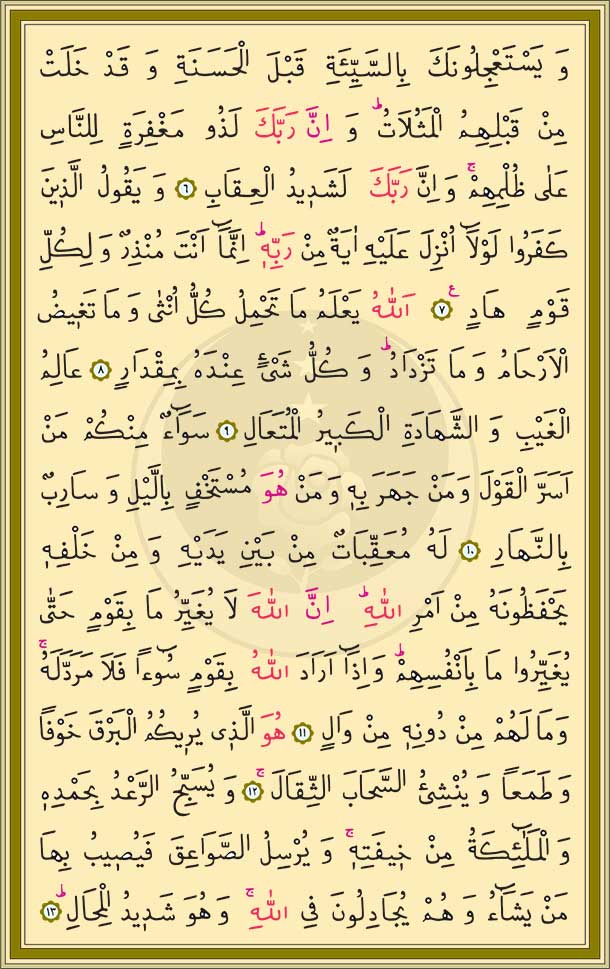 وَ يَسْتَعْجِلُونَكَ بِالسَّيِّئَةِ قَبْلَ الْحَسَنَةِ وَ قَدْ خَلَتْ
مِنْ قَبْلِهِمُ الْمَثُلَاتُۜ وَ اِنَّ رَبَّكَ لَذُو مَغْفِرَةٍ لِلنَّاسِ
عَلٰى ظُلْمِهِمْۚ وَ اِنَّ رَبَّكَ لَشَد۪يدُ الْعِقَابِ ﴿٦﴾ وَ يَقُولُ الَّذ۪ينَ
كَفَرُوا لَوْلَٓا اُنْزِلَ عَلَيْهِ اٰيَةٌ مِنْ رَبِّه۪ۜ اِنَّمَٓا اَنْتَ مُنْذِرٌ وَ لِكُلِّ
قَوْمٍ هَادٍ۟ ﴿٧﴾ اَللّٰهُ يَعْلَمُ مَا تَحْمِلُ كُلُّ اُنْثٰى وَ مَا تَغ۪يضُ
الْاَرْحَامُ وَ مَا تَزْدَادُۜ وَ كُلُّ شَيْءٍ عِنْدَهُ بِمِقْدَارٍ ﴿٨﴾ عَالِمُ
الْغَيْبِ وَ الشَّهَادَةِ الْكَب۪يرُ الْمُتَعَالِ ﴿٩﴾ سَوَٓاءٌ مِنْكُمْ مَنْ
اَسَرَّ الْقَوْلَ وَ مَنْ جَهَرَ بِه۪ وَ مَنْ هُوَ مُسْتَخْفٍ بِالَّيْلِ وَ سَارِبٌ
بِالنَّهَارِ ﴿١٠﴾ لَهُ مُعَقِّبَاتٌ مِنْ بَيْنِ يَدَيْهِ وَ مِنْ خَلْفِه۪
يَحْفَظُونَهُ مِنْ اَمْرِ اللّٰهِۜ اِنَّ اللّٰهَ لَا يُغَيِّرُ مَا بِقَوْمٍ حَتّٰى
يُغَيِّرُوا مَا بِاَنْفُسِهِمْۜ وَ اِذَٓا اَرَادَ اللّٰهُ بِقَوْمٍ سُٓوءاً فَلَا مَرَدَّ لَهُۚ
وَ مَا لَهُمْ مِنْ دُونِه۪ مِنْ وَالٍ ﴿١١﴾ هُوَ الَّذ۪ي يُر۪يكُمُ الْبَرْقَ خَوْفاً
وَ طَمَعاً وَ يُنْشِئُ السَّحَابَ الثِّقَالَۚ ﴿١٢﴾ وَ يُسَبِّحُ الرَّعْدُ بِحَمْدِه۪
وَ الْمَلٰٓئِكَةُ مِنْ خ۪يفَتِه۪ۚ وَ يُرْسِلُ الصَّوَاعِقَ فَيُص۪يبُ بِهَا
مَنْ يَشَٓاءُ وَ هُمْ يُجَادِلُونَ فِي اللّٰهِۚ وَ هُوَ شَد۪يدُ الْمِحَالِۜ ﴿١٣﴾